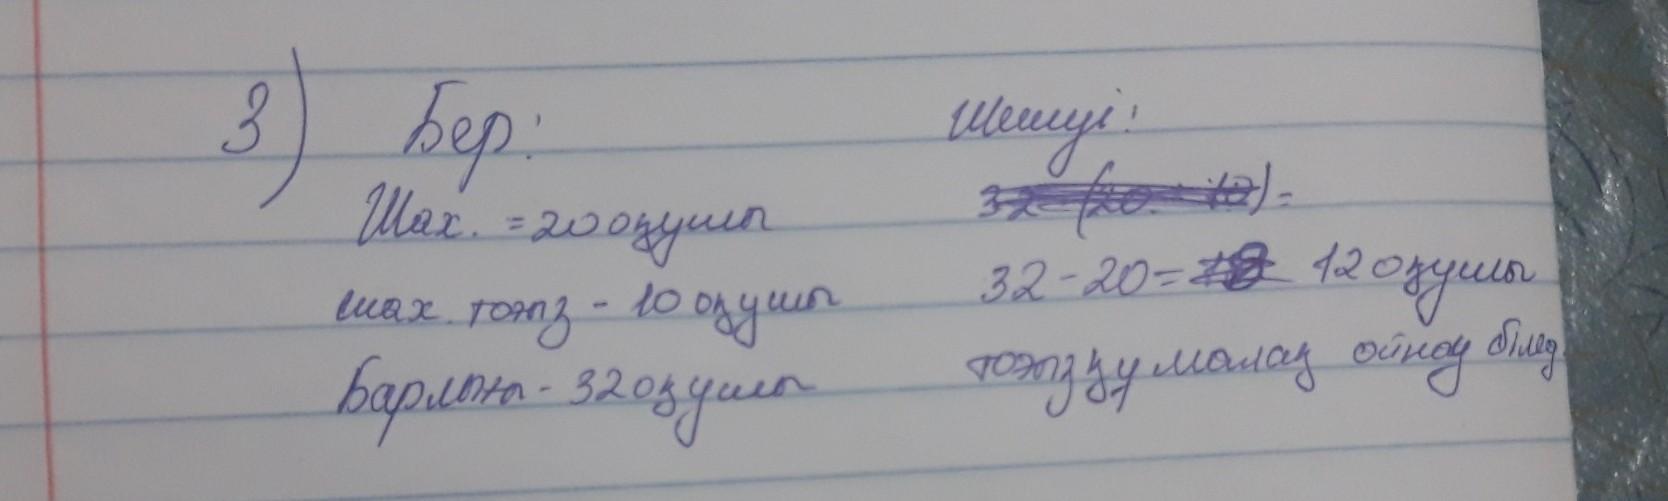 3) Бер:
Шешуі:
Шах. = 20 оқушы
шах. тоғыз - 10 оқушы
32 - 20 = 12 оқушы
Барлығы - 32 оқушы
тоғызқұмалақ ойнау білед